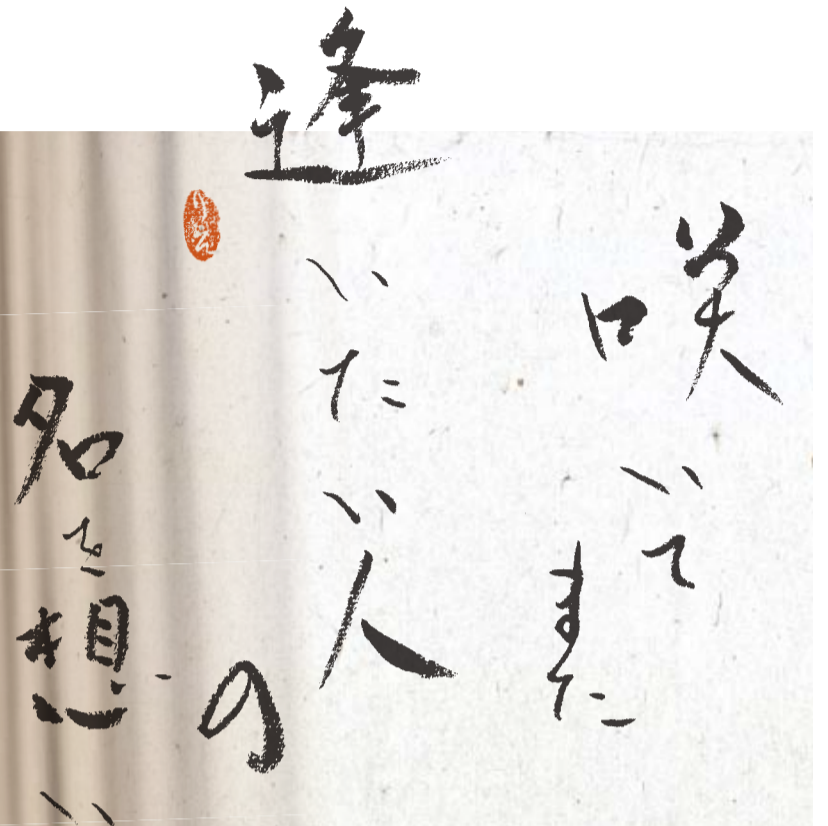 咲いて
また
逢いたい人
の
名を想い